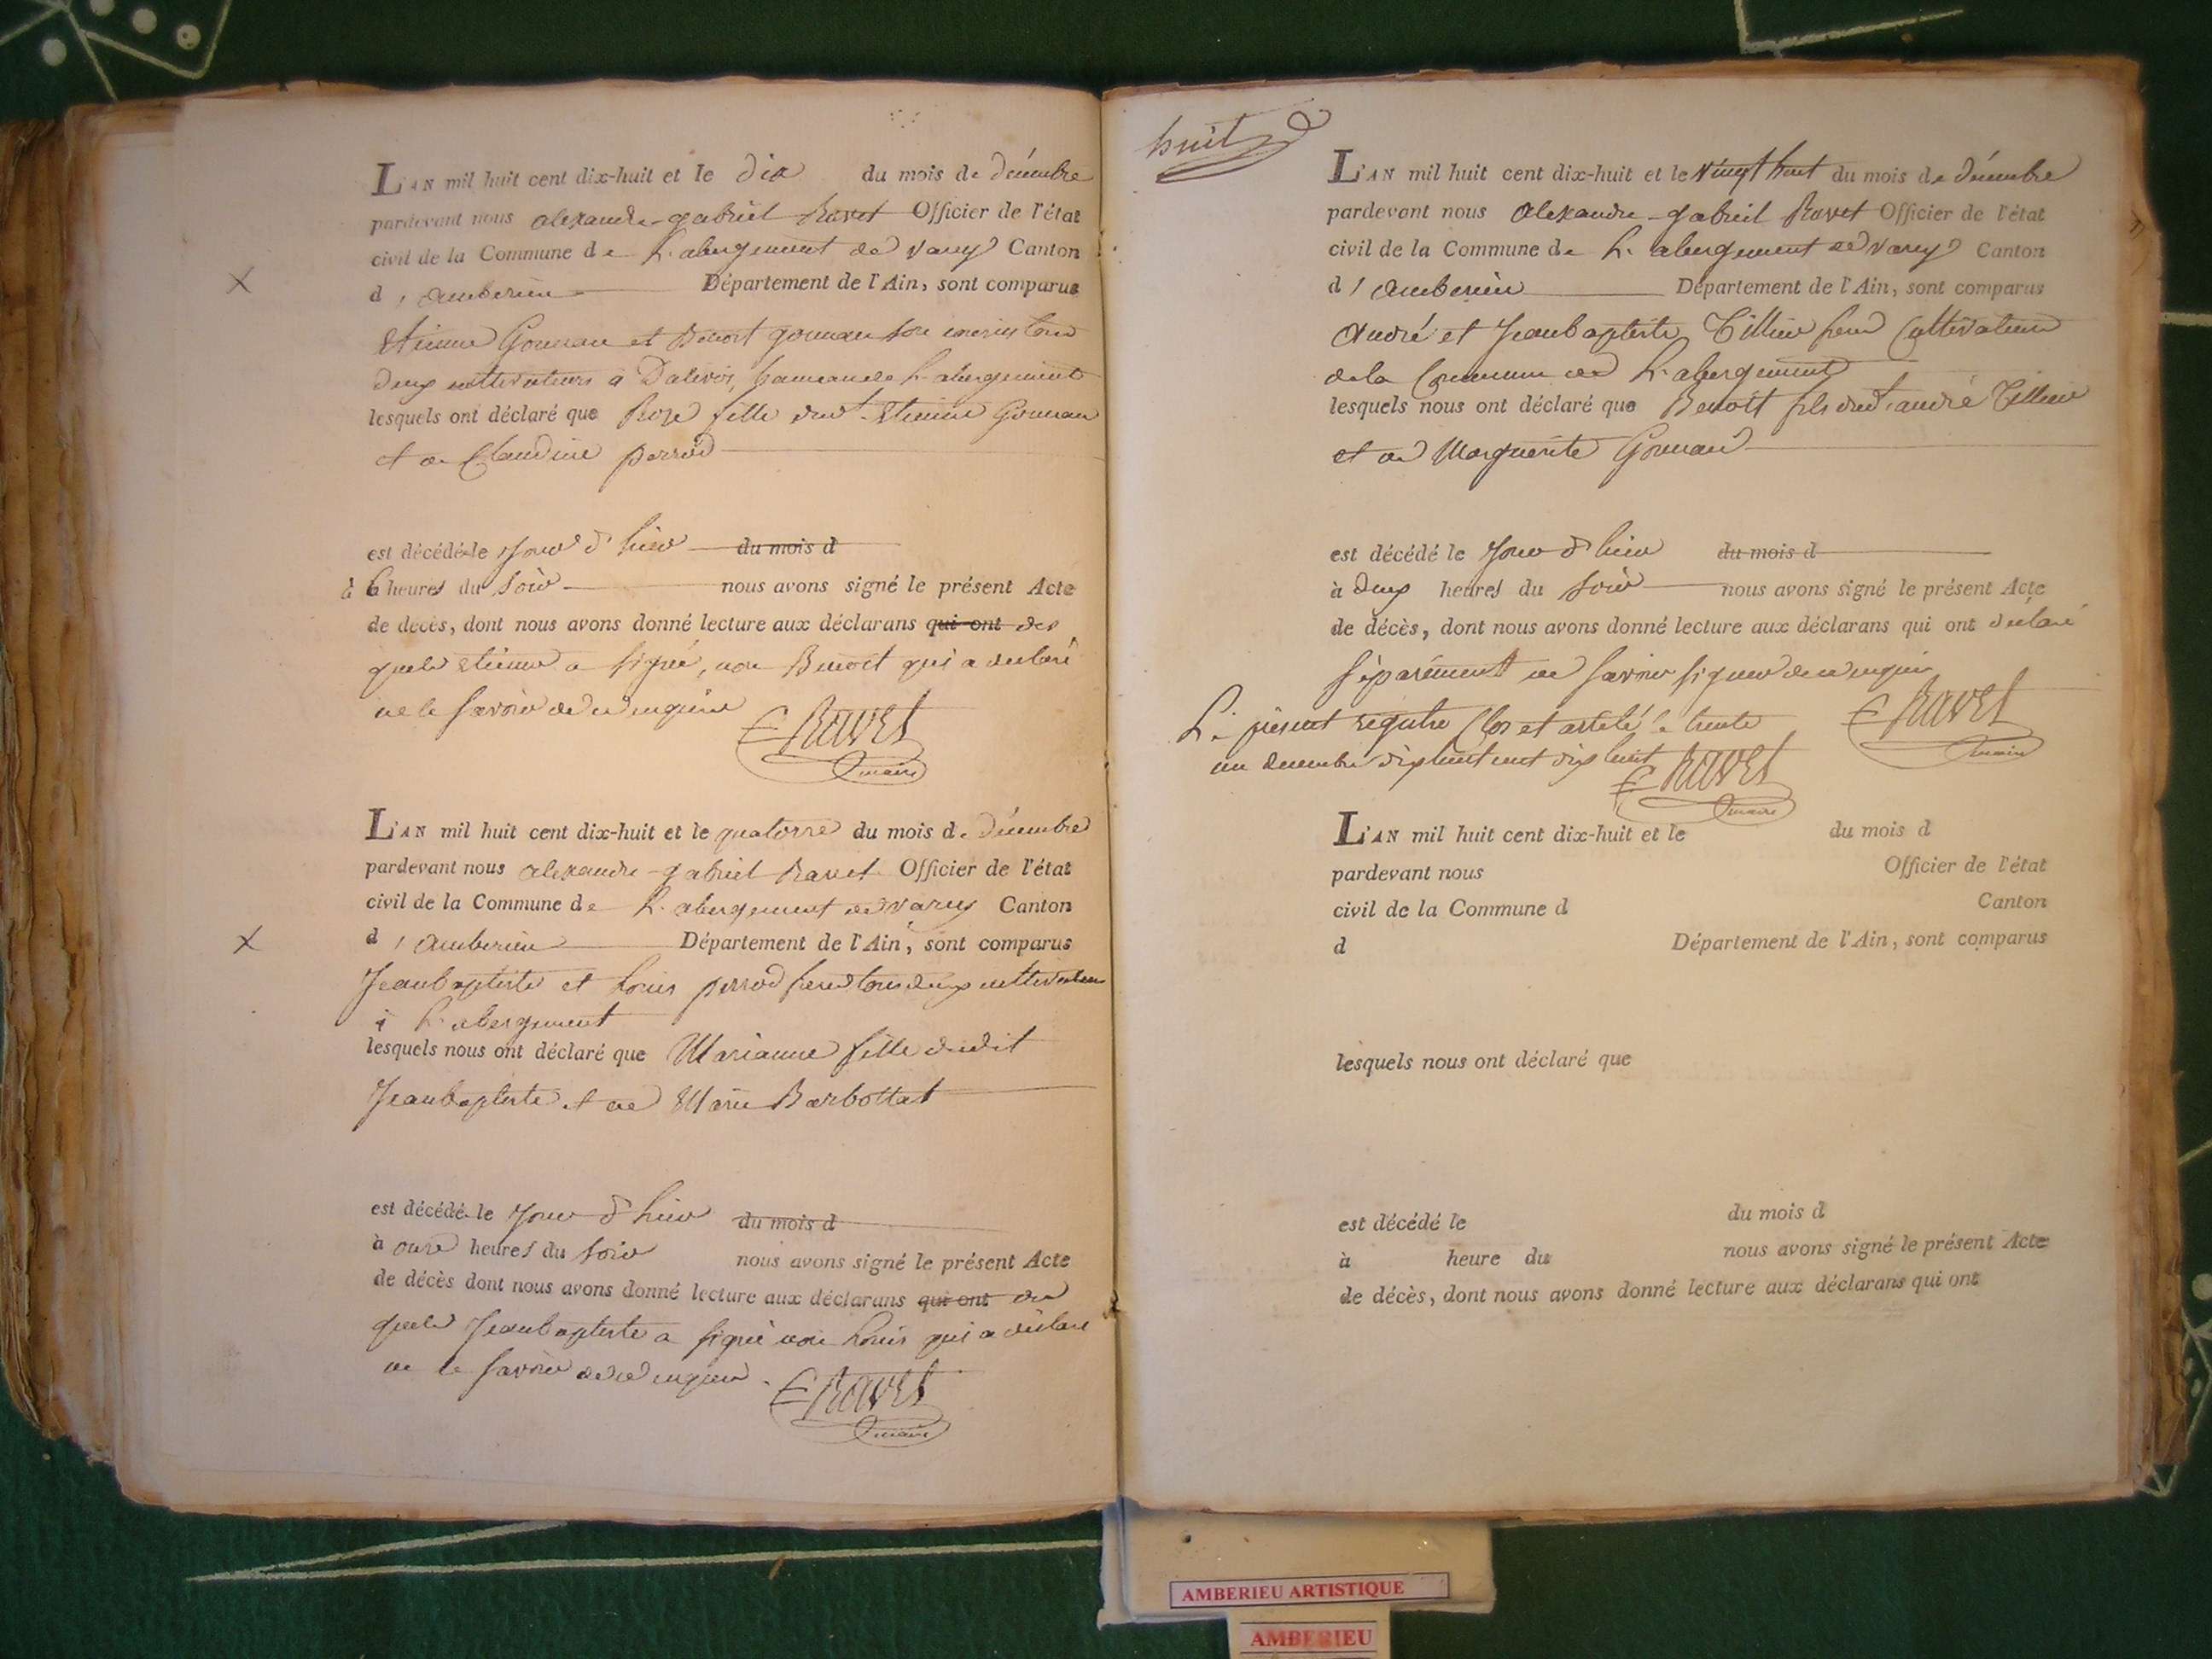 L'AN mil huit cent dix-huit et le dix du mois de décembre
pardevant nous alexandre-gabriel Ravet Officier de l'état
civil de la Commune de L'abergement de varey Canton
d'amberieu Département de l'Ain, sont comparus
Etienne Gounan et Benoit gounan son cousin tous
deux cultivateurs à Dalivoi, hameau de L'abergement
lesquels ont déclaré que Roze fille dud. Etienne Gounan
et de Claudine perrod
est décédé le Jour d'hier du mois d
à 6 heures du soir nous avons signé le présent Acte
de décès, dont nous avons donné lecture aux déclarans qui ont des
quels etienne a signé, non Benoit qui a déclaré
ne le savoir de ce enquis
Ravet
maire
L'AN mil huit cent dix-huit et le quatorze du mois de décembre
pardevant nous alexandre-gabriel Ravet Officier de l'état
civil de la Commune de L'abergement de varey Canton
d'amberieu Département de l'Ain, sont comparus
Jeanbaptiste et Louis perrod freres tous deux cultivateurs
à L'abergement
lesquels nous ont déclaré que Marianne fille dudit
Jeanbaptiste et de Marie Barbottat
est décédé le Jour d'hier du mois d
à onze heures du soir nous avons signé le présent Acte
de décès dont nous avons donné lecture aux déclarans qui ont des
quels Jeanbaptiste a signé non Louis qui a déclaré
ne le savoir de ce enquis.
Ravet
maire
huit
L'AN mil huit cent dix-huit et le vingt huit du mois de décembre
pardevant nous alexandre-gabriel Ravet Officier de l'état
civil de la Commune de L'abergement de varey Canton
d'amberieu Département de l'Ain, sont comparus
André et Jeanbaptiste Tillier freres Cultivateurs
de la Commune de L'abergement
lesquels nous ont déclaré que Benoit fils dud. andré Tillier
et de Marguerite Gounan
est décédé le Jour d'hier du mois d
à deux heures du soir nous avons signé le présent Acte
de décès, dont nous avons donné lecture aux déclarans qui ont déclaré
séparément ne savoir signer de ce enquis
Ravet
maire
Le présent registre Clos et arrêté le trente
un decembre dix huit cent dix huit
Ravet
maire
L'AN mil huit cent dix-huit et le du mois d
pardevant nous Officier de l'état
civil de la Commune d Canton
d Département de l'Ain, sont comparus
lesquels nous ont déclaré que
est décédé le du mois d
à heure du nous avons signé le présent Acte
de décès, dont nous avons donné lecture aux déclarans qui ont
AMBERIEU ARTISTIQUE
AMBERIEU